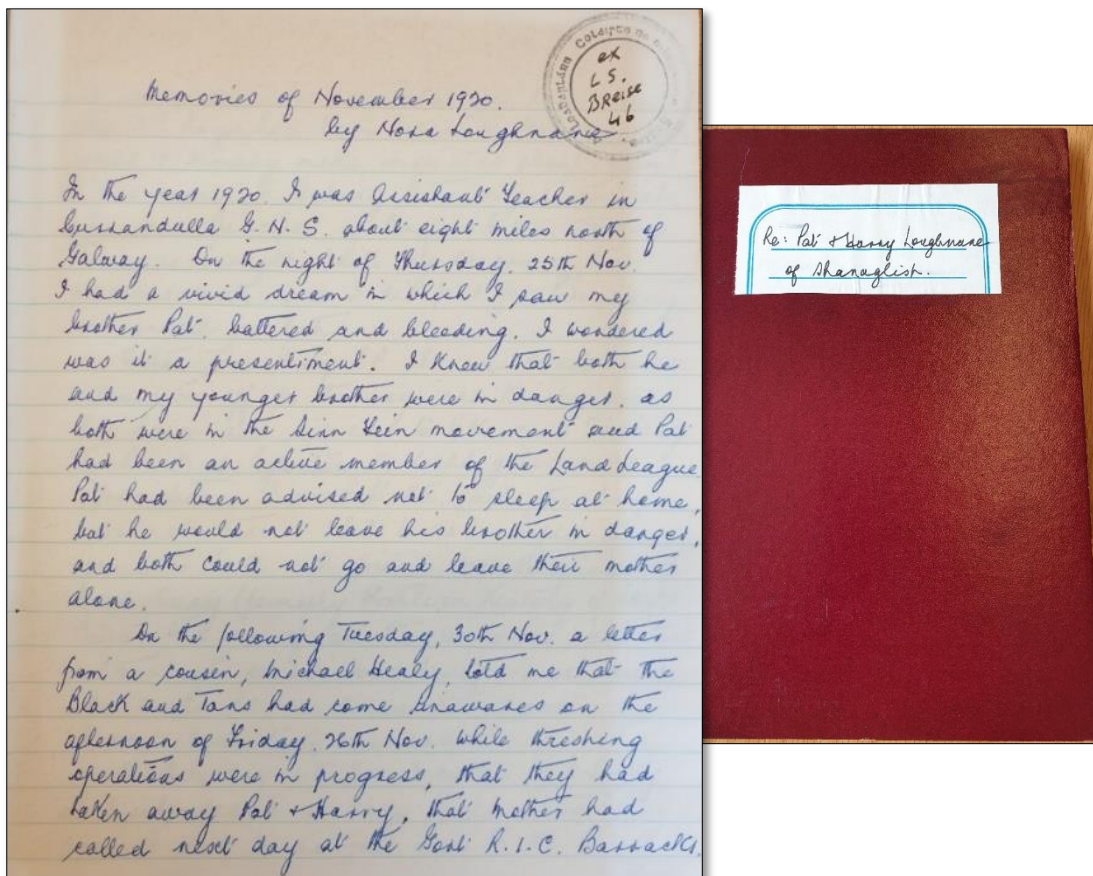 Memories of November 1920.
by Nora Loughnane
ex
LS.
BReise
46
In the year 1920. I was Assistant Teacher in
Currandulla G. N. S. about eight miles north of
Galway. On the night of Thursday. 25th Nov.
I had a vivid dream in which I saw my
brother Pat battered and bleeding. I wondered
was it a presentiment. I knew that both he
and my younger brother were in danger. as
both were in the Sinn Fein movement and Pat
had been an active member of the Land League
Pat had been advised not to sleep at home,
but he would not leave his brother in danger,
and both could not go and leave their mother
alone.
On the following Tuesday, 30th Nov. a letter
from a cousin, Michael Healy, told me that the
Black and Tans had come unawares on the
afternoon of Friday. 26th Nov. while threshing
operations were in progress, that they had
taken away Pat + Harry, that mother had
called next day at the Gort R.I.C. Barracks.
Re: Pat + Harry Loughnane
of Shanaglish.